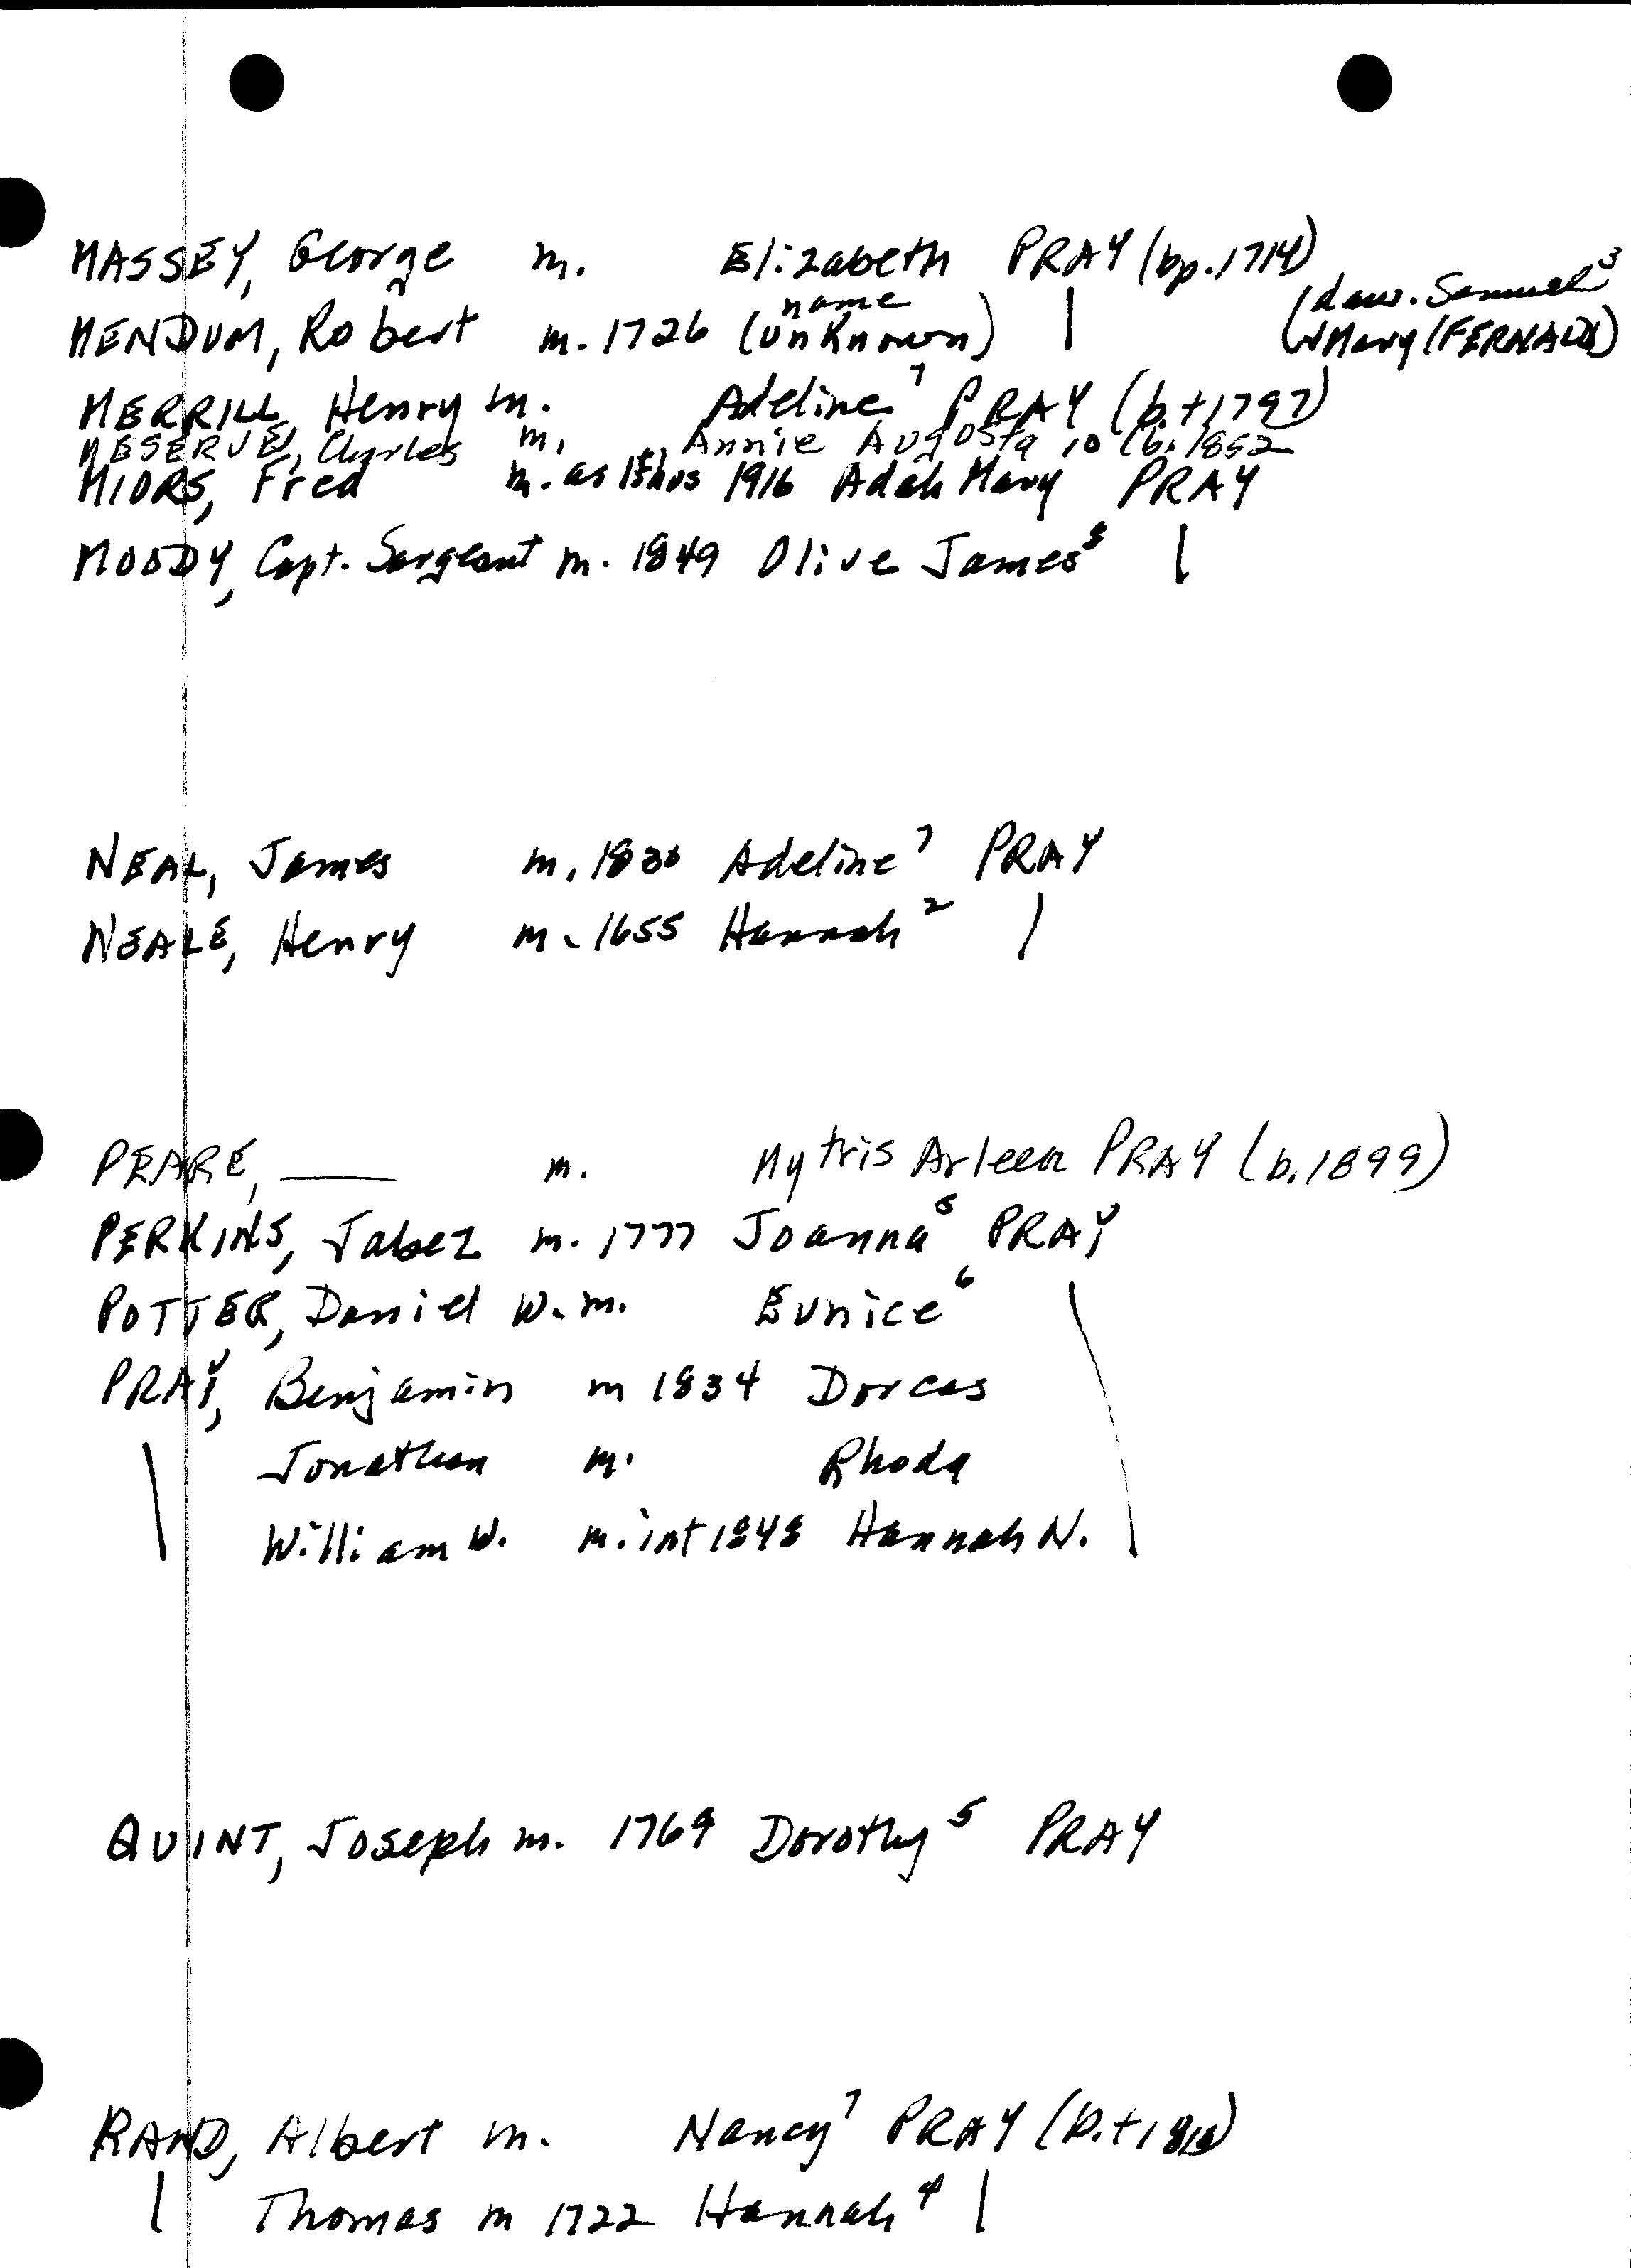 MASSEY, George m. Elizabeth PRAY (bp. 1714)
MENDUM, Robert m. 1726 (name unknown) | (dau. Samuel³
& Mary (FERNALD)
MERRILL, Henry m. Adeline⁷ PRAY (b. + 1797)
MESERVE, Charles m. Annie Augusta 10 (b. 1852
MIORS, Fred m. as 1st hus 1916 Adah Mary PRAY
MOODY, Capt. Sargeant m. 1849 Olive James⁸ |
NEAL, James m. 1830 Adeline⁷ PRAY
NEALE, Henry m. 1655 Hannah² |
PEARE, —— m. Mytris Arleen PRAY (b. 1899)
PERKINS, Jabez m. 1777 Joanna⁵ PRAY
POTTER, Daniel W. m. Eunice⁶
PRAY, Benjamin m 1834 Dorcas
Jonathan m. Rhoda
William W. m. int 1848 Hannah N.
QUINT, Joseph m. 1769 Dorothy⁵ PRAY
RAND, Albert m. Nancy⁷ PRAY (b. +
| Thomas m 1722 Hannah⁴ |